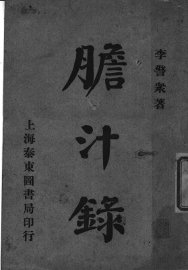 李警眾著
膽汁錄
上海泰東圖書局印行